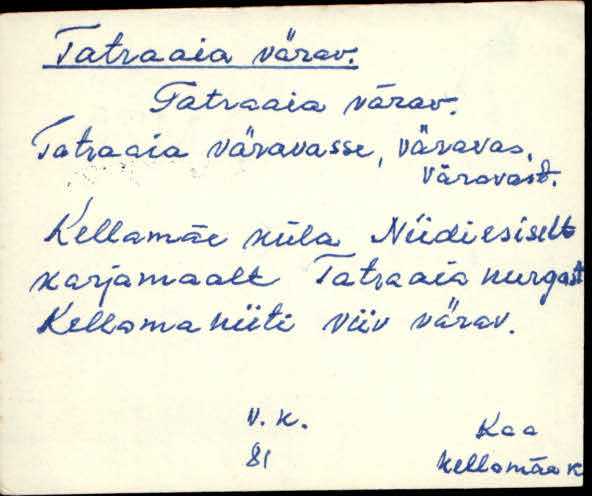 Tatraaia värav.
Tatraaia värav.
Tatraaia väravasse, väravas,
väravast.
Kellamäe küla Niidiesiselt
karjamaalt Tatraaia nurgast
Kellamaniiti viiv värav.
V. K.
81
Kaa
Kellamäe k